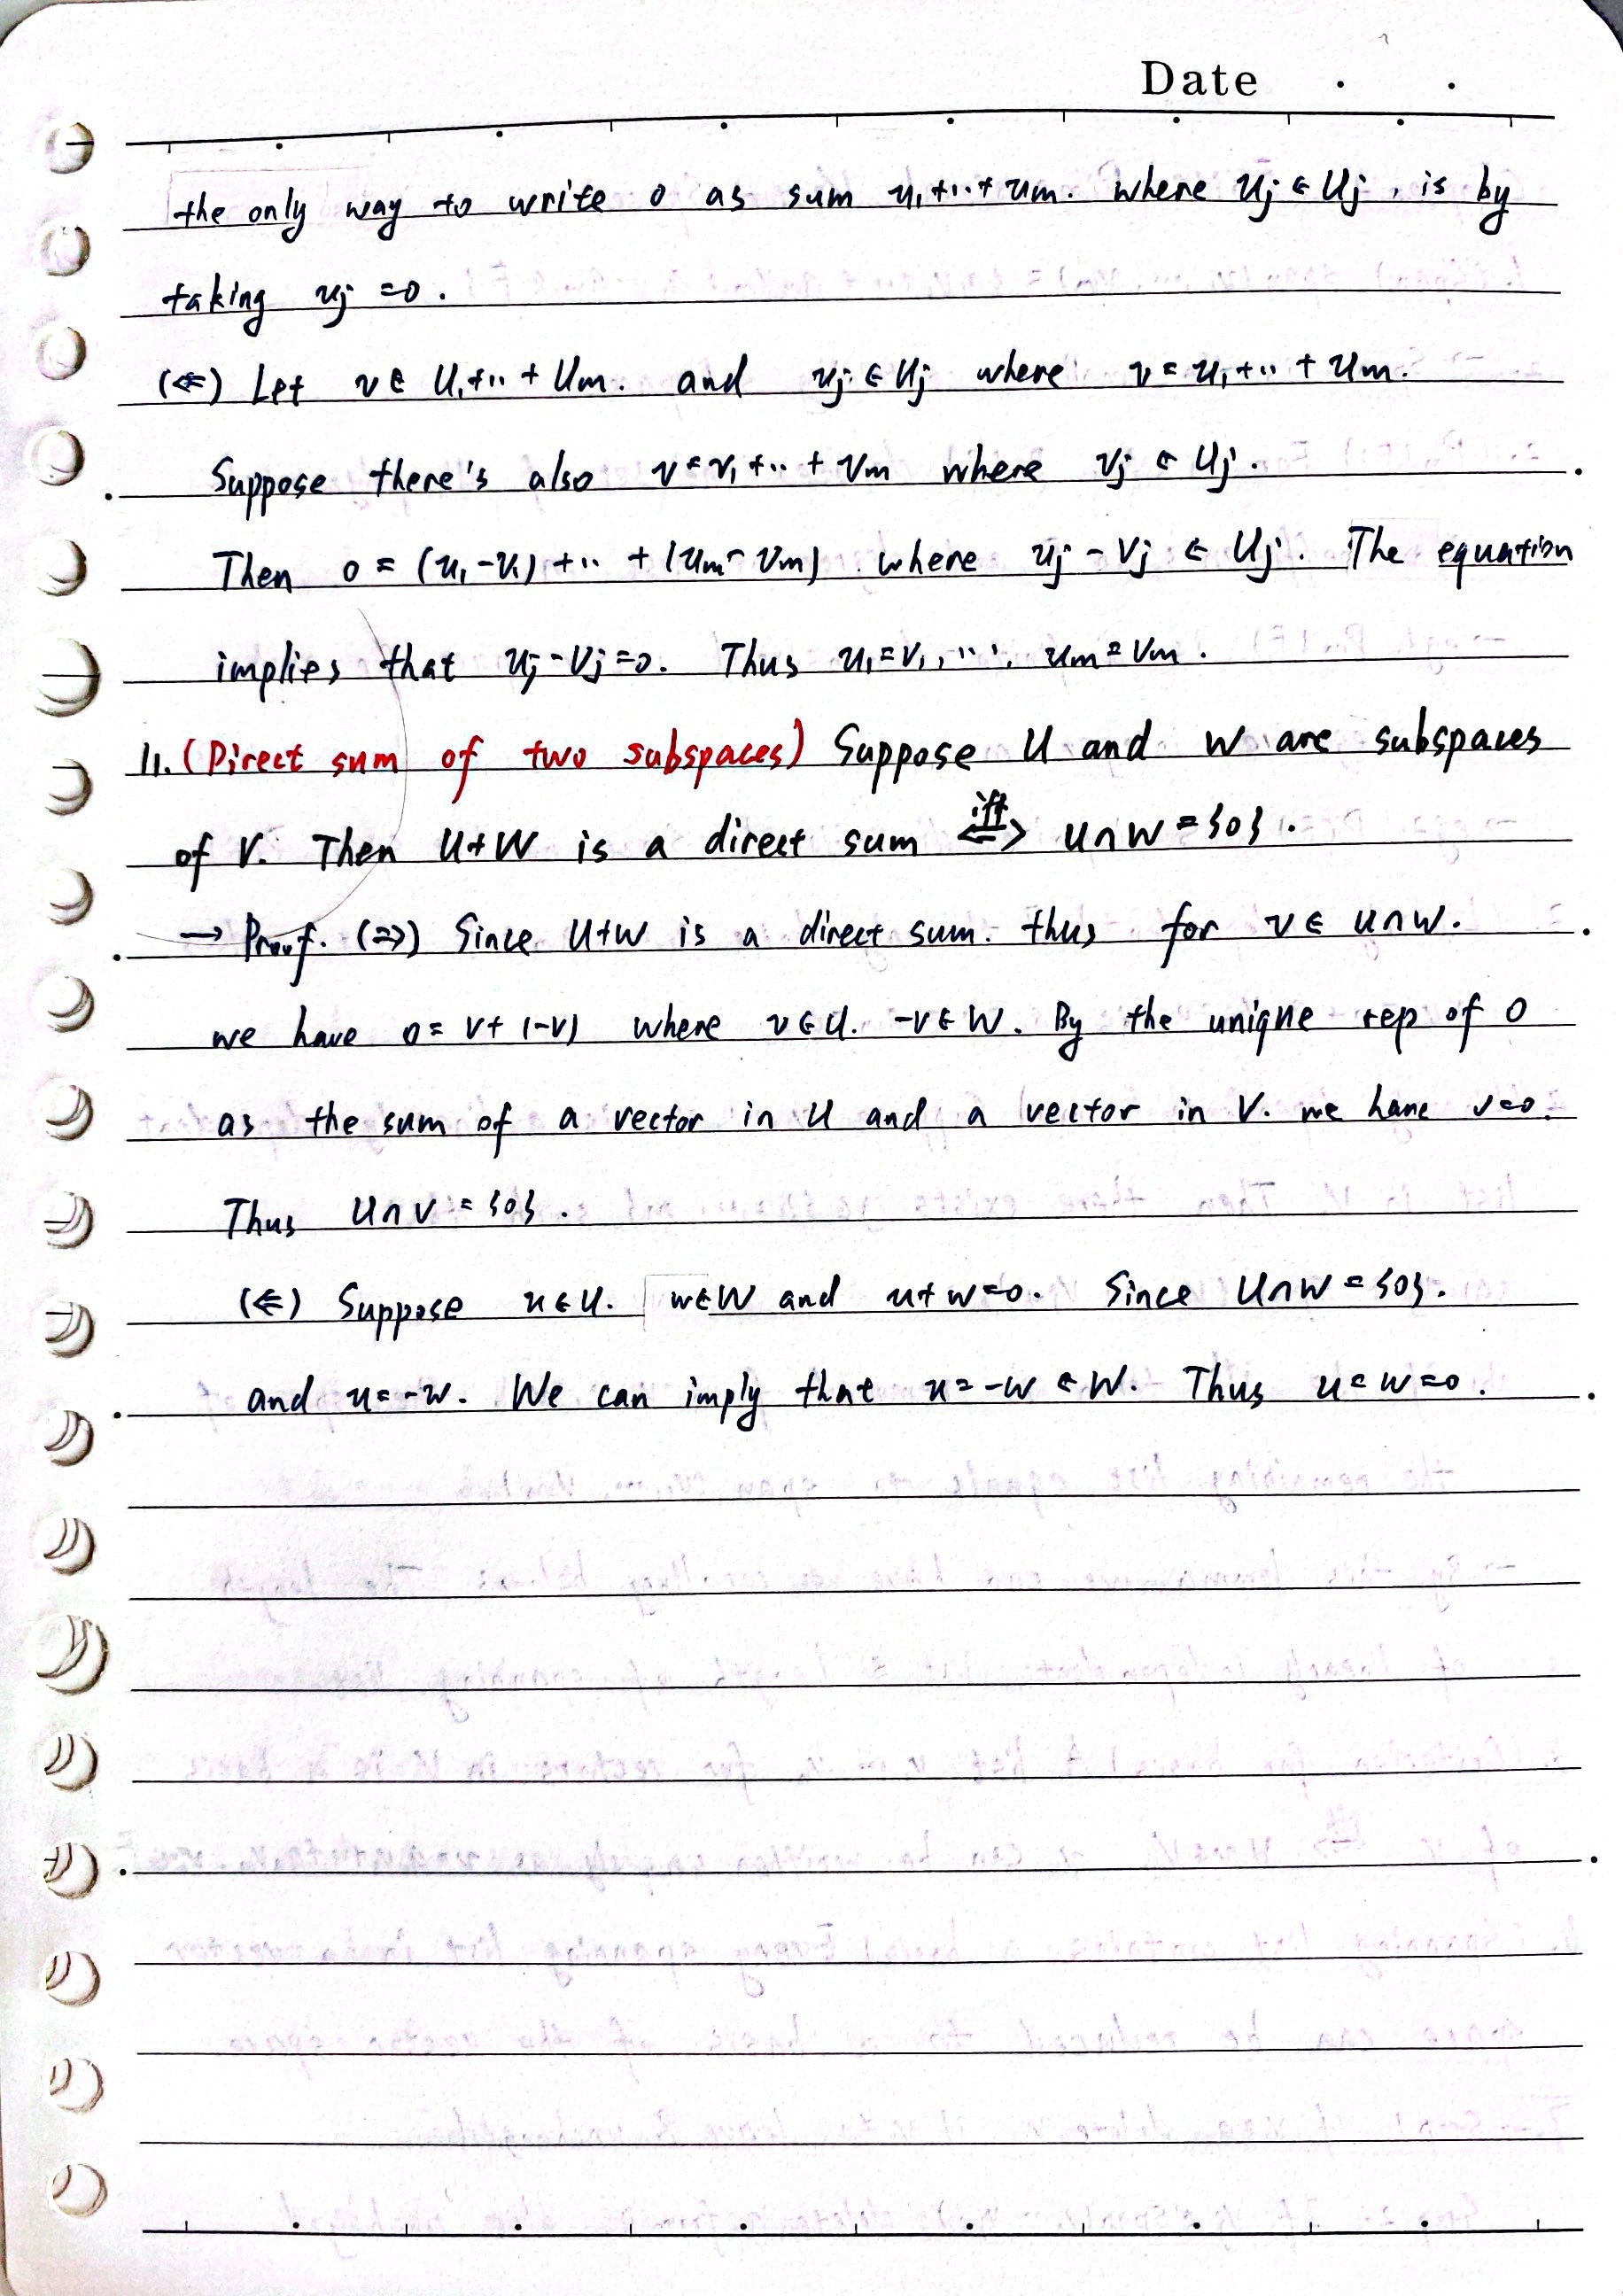 Date . .
the only way to write 0 as sum u₁+··+um. where uj ∈ Uj, is by
taking uj =0.
(⇐) Let v ∈ U₁+··+Um. and uj ∈ Uj where v = u₁+··+um.
Suppose there's also v=v₁+··+vm where vj ∈ Uj.
Then 0 = (u₁-v₁)+··+(um-vm) where uj-vj ∈ Uj. The equation
implies that uj-vj=0. Thus u₁=v₁, ···, um=vm.
11. (Direct sum of two subspaces) Suppose U and W are subspaces
of V. Then U+W is a direct sum iff <=> U∩W={0}.
→ Proof. (⇒) Since U+W is a direct sum. thus for v ∈ U∩W.
we have 0= v+(-v) where v∈U. -v∈W. By the unique rep of 0
as the sum of a vector in U and a vector in V. we have v=0.
Thus U∩V = {0}.
(⇐) Suppose u∈U. w∈W and u+w=0. Since U∩W={0}.
and u=-w. We can imply that u=-w ∈ W. Thus u=w=0.